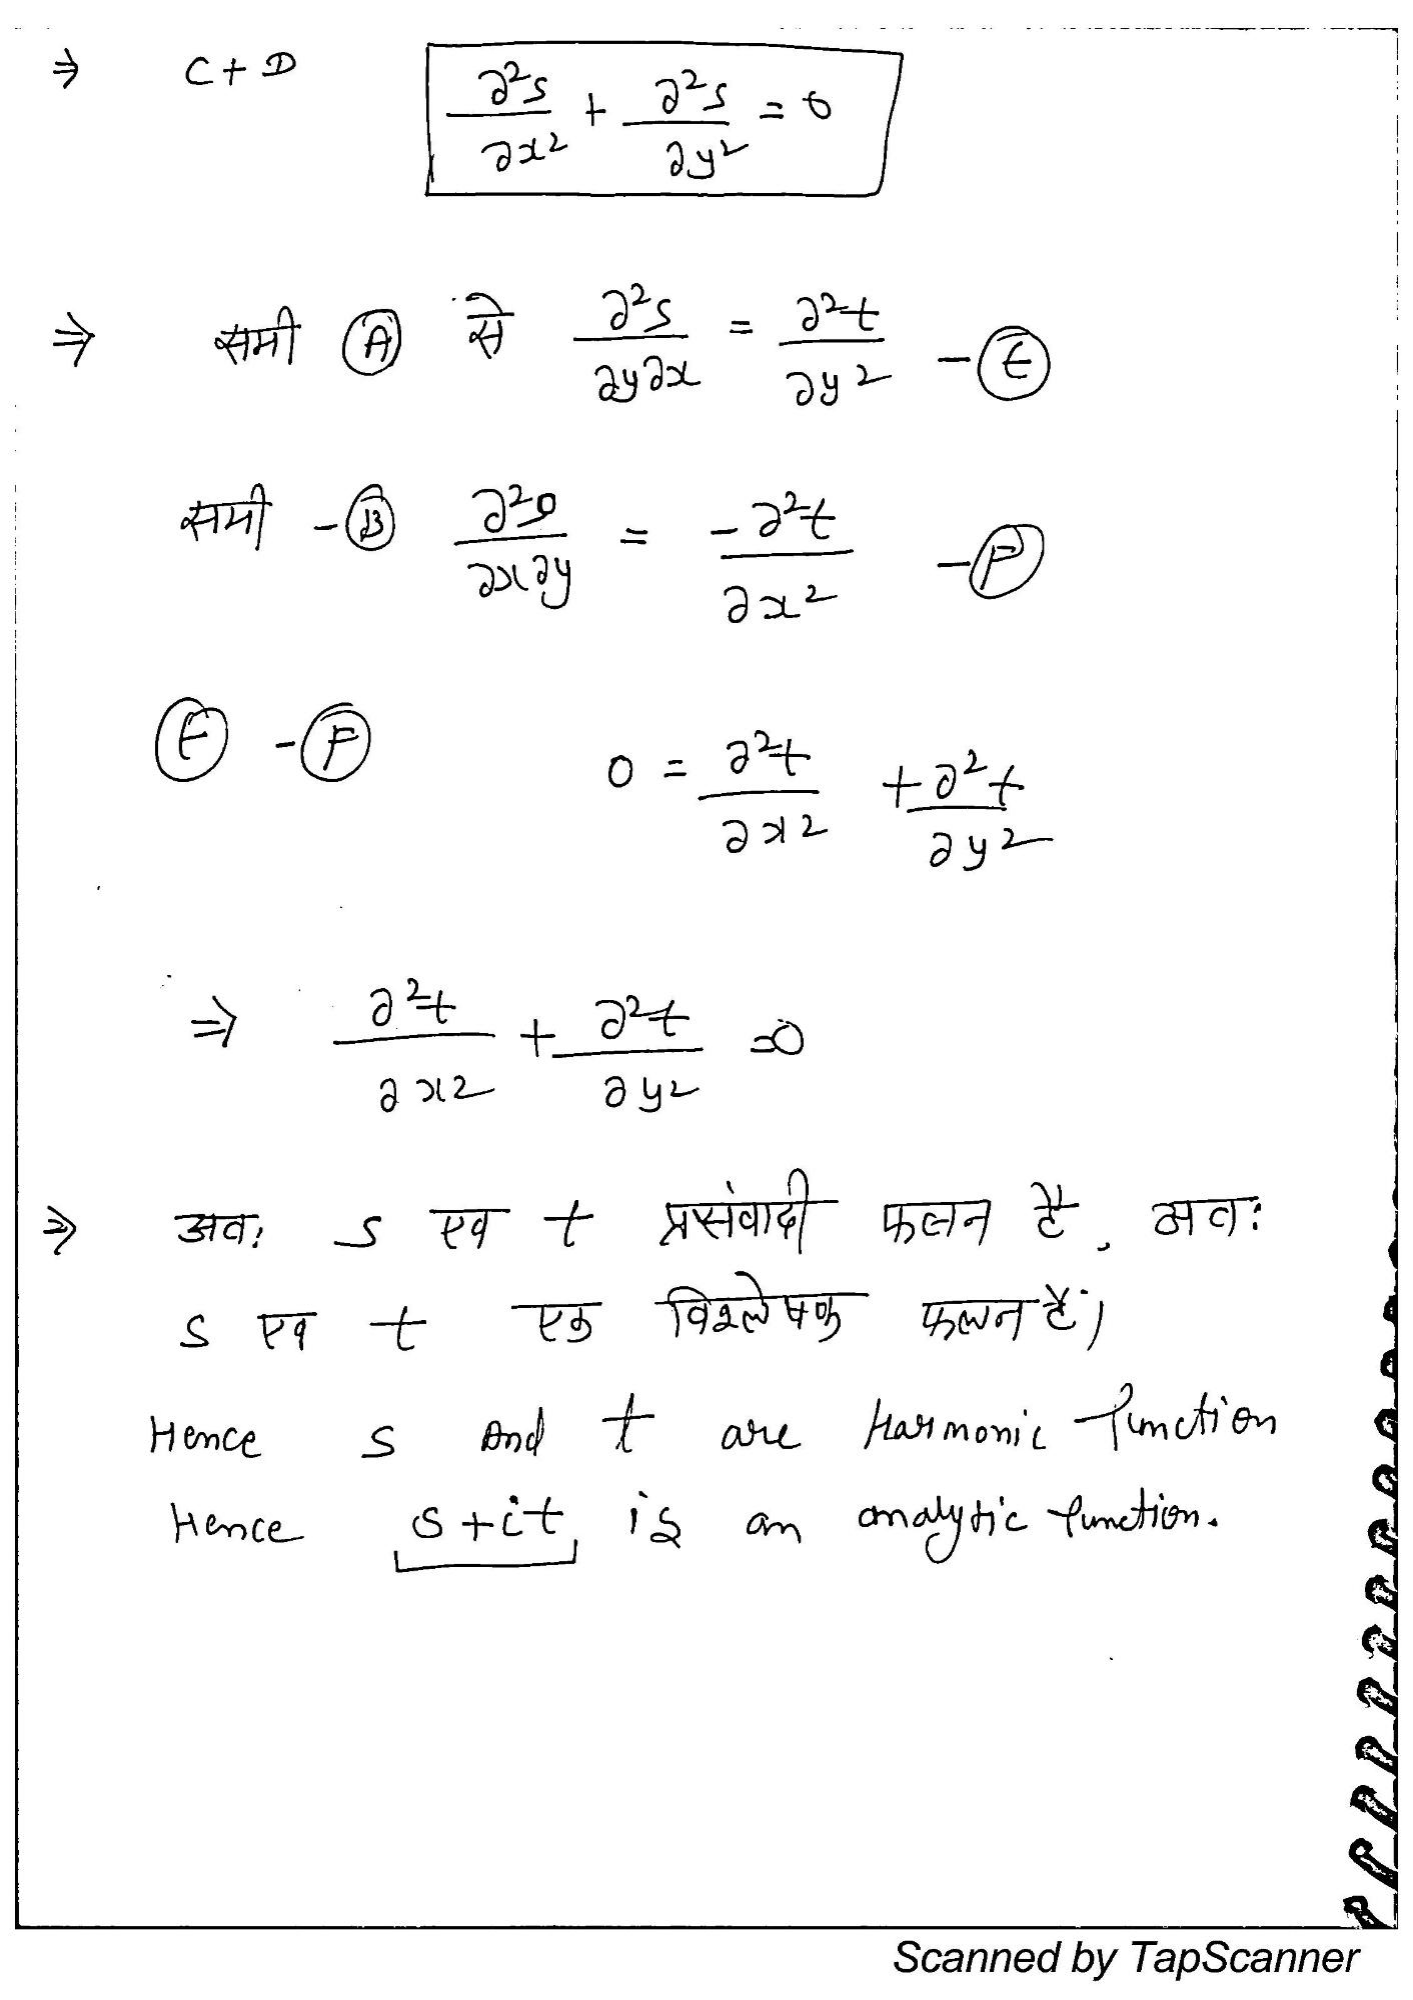 ⇒ C + D ∂²s/∂x² + ∂²s/∂y² = 0
⇒ समी Ⓐ से ∂²s/∂y∂x = ∂²t/∂y² - Ⓔ
समी - Ⓑ ∂²s/∂x∂y = -∂²t/∂x² - Ⓕ
Ⓔ - Ⓕ 0 = ∂²t/∂x² + ∂²t/∂y²
⇒ ∂²t/∂x² + ∂²t/∂y² = 0
⇒ अतः s एव t प्रसंवादी फलन है, अतः
s एव t एक विश्लेषक फलन है।
Hence s And t are Harmonic function
Hence s + it is an analytic function.
Scanned by TapScanner